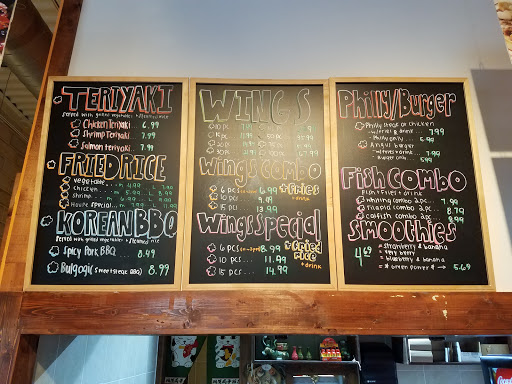 TERIYAKI
Served with grilled vegetables + steamed rice
Chicken Teriyaki... 6.99
Shrimp Teriyaki... 7.99
Salmon Teriyaki... 7.99
FRIED RICE
Vegetable
Chicken
Shrimp
House Special
KOREAN BBQ
Served with grilled vegetables + steamed rice
Spicy Pork BBQ... 8.99
Bulgogi (sweet steak BBQ) 8.99
WINGS
WINGS COMBO
+ FRIES
+ drink
6 pcs 6.99
13.99
WINGS SPECIAL
+ fried
rice
+ drink
6 pcs 8.99
10 pcs... 11.99
15 pcs... 14.99
PHILLY/BURGER
Philly steak or chicken
w/fries & drink... 7.99
Philly only... 5.99
Angus burger
w/fries + drink... 7.99
Burger only... 5.99
FISH COMBO
Fish + fries + drink
whiting combo 2 pc. 7.99
Tilapia combo 2 pc. 8.79
catfish combo 2 pc. 9.99
SMOOTHIES
4.69
strawberry & banana
very berry
blueberry & banana
* green power 5.69